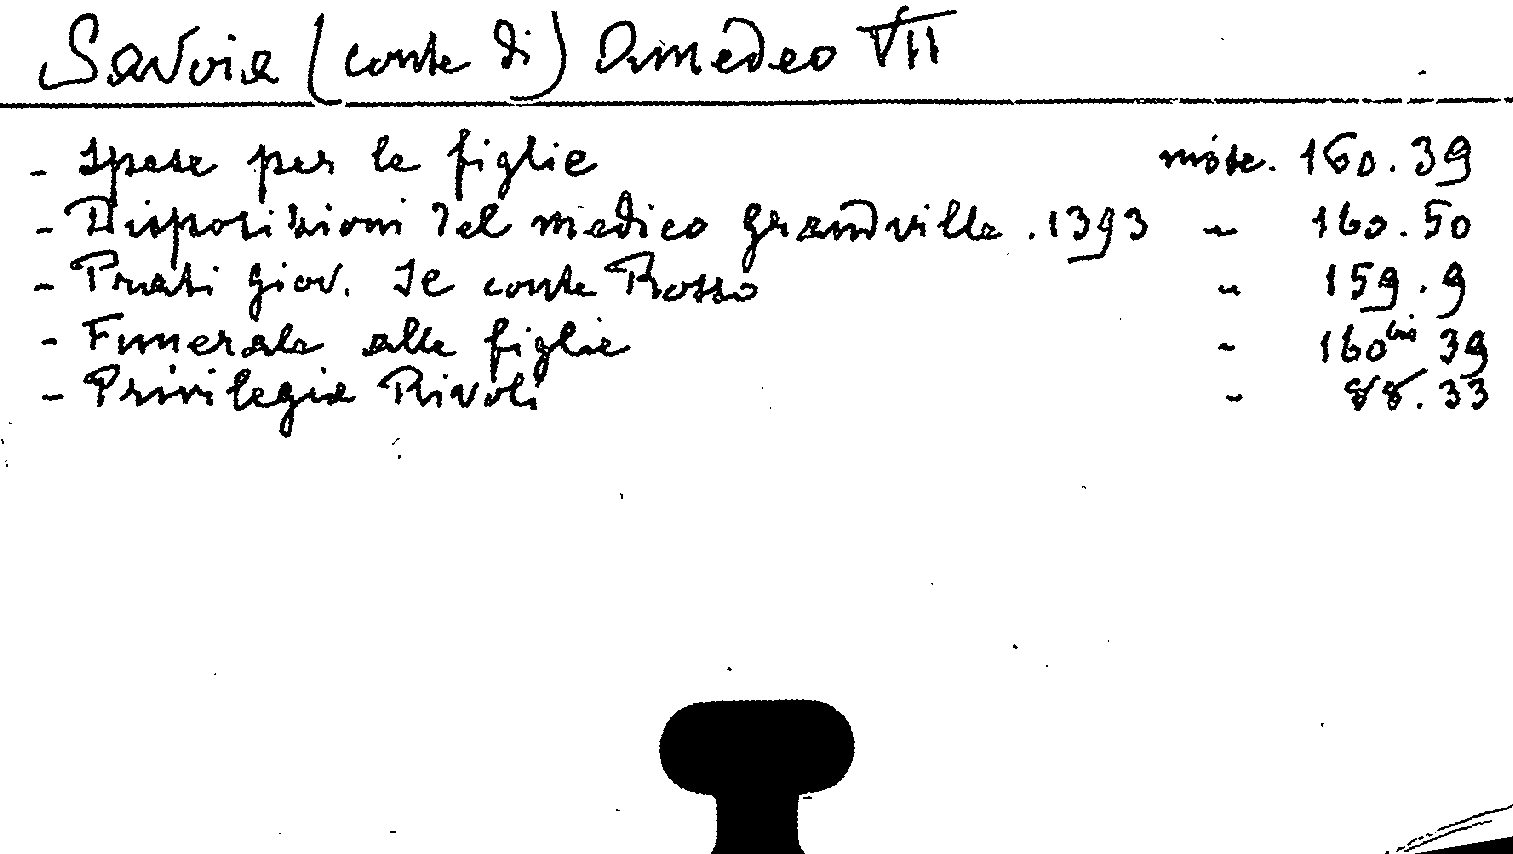 Savoia (conte di) Amedeo VII
- Spese per le figlie miste. 160.39
- Disposizioni del medico Grandville. 1393 " 160.50
- Prati Giov. Il conte Rosso " 159.9
- Funerale alle figlie " 160bis 39
- Privilegia Rivoli " 88.33